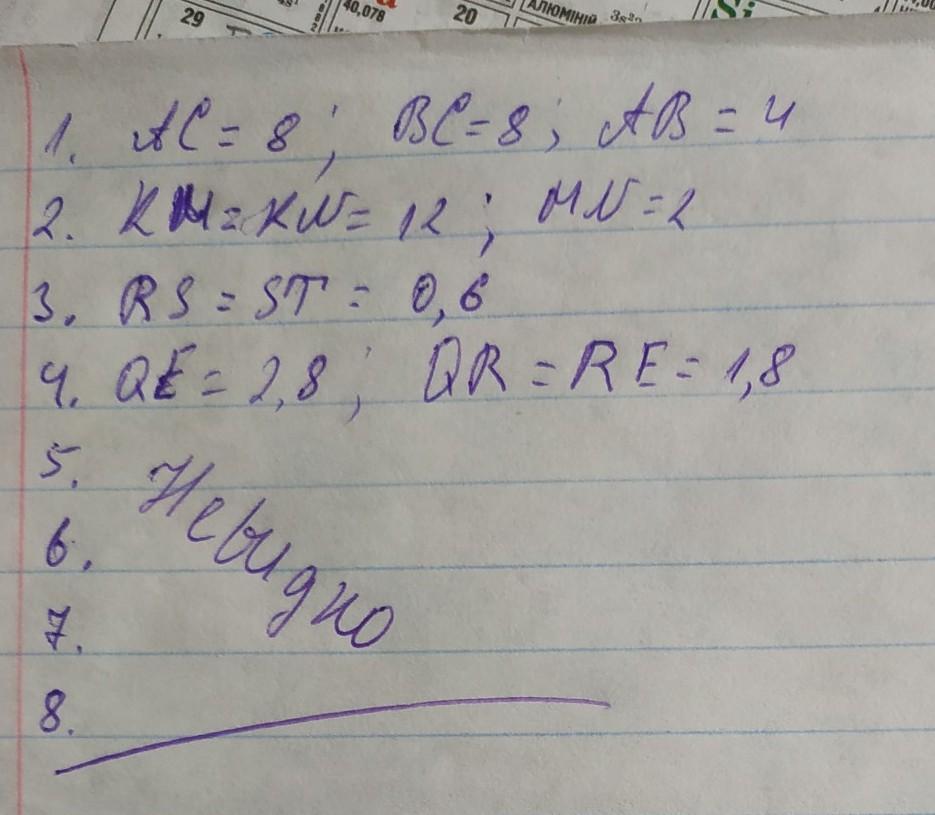 29
40,078
20
АЛЮМІНІЙ
Si
1. AC = 8 ; BC = 8 ; AB = 4
2. KM = KN = 12 ; MN = 2
3. RS = ST = 0,6
4. QE = 2,8 ; QR = RE = 1,8
5. Невидно
6.
7.
8.